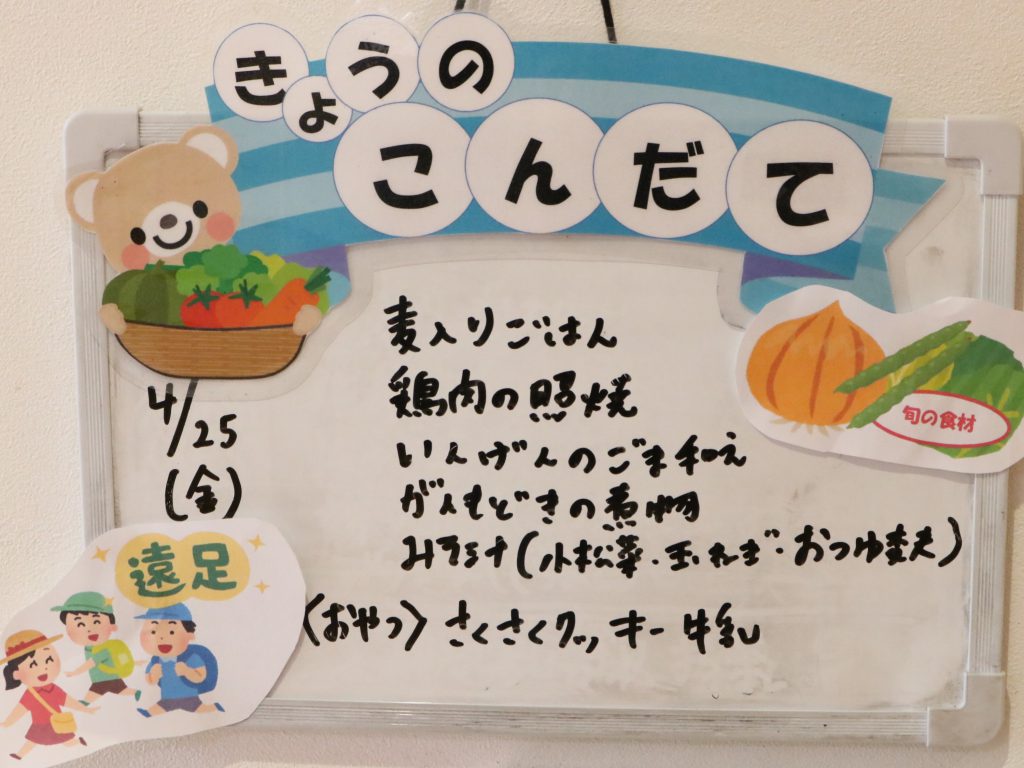 きょうの
こんだて
麦入りごはん
鶏肉の照焼
旬の食材
4/25
(金)
いんげんのごま和え
がんもどきの煮物
みそ汁(小松菜・玉ねぎ・おつゆ麩)
遠足
〈おやつ〉さくさくクッキー 牛乳